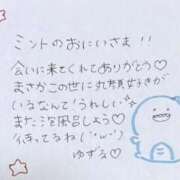 ミントのおにいさま!!
会いに来てくれてありがとう♡
まさかこの世に丸顔好きが
いるなんて!うれしい☆
また泡風呂しよう♡
待ってるね(´･ω･`)
ゆずる♡